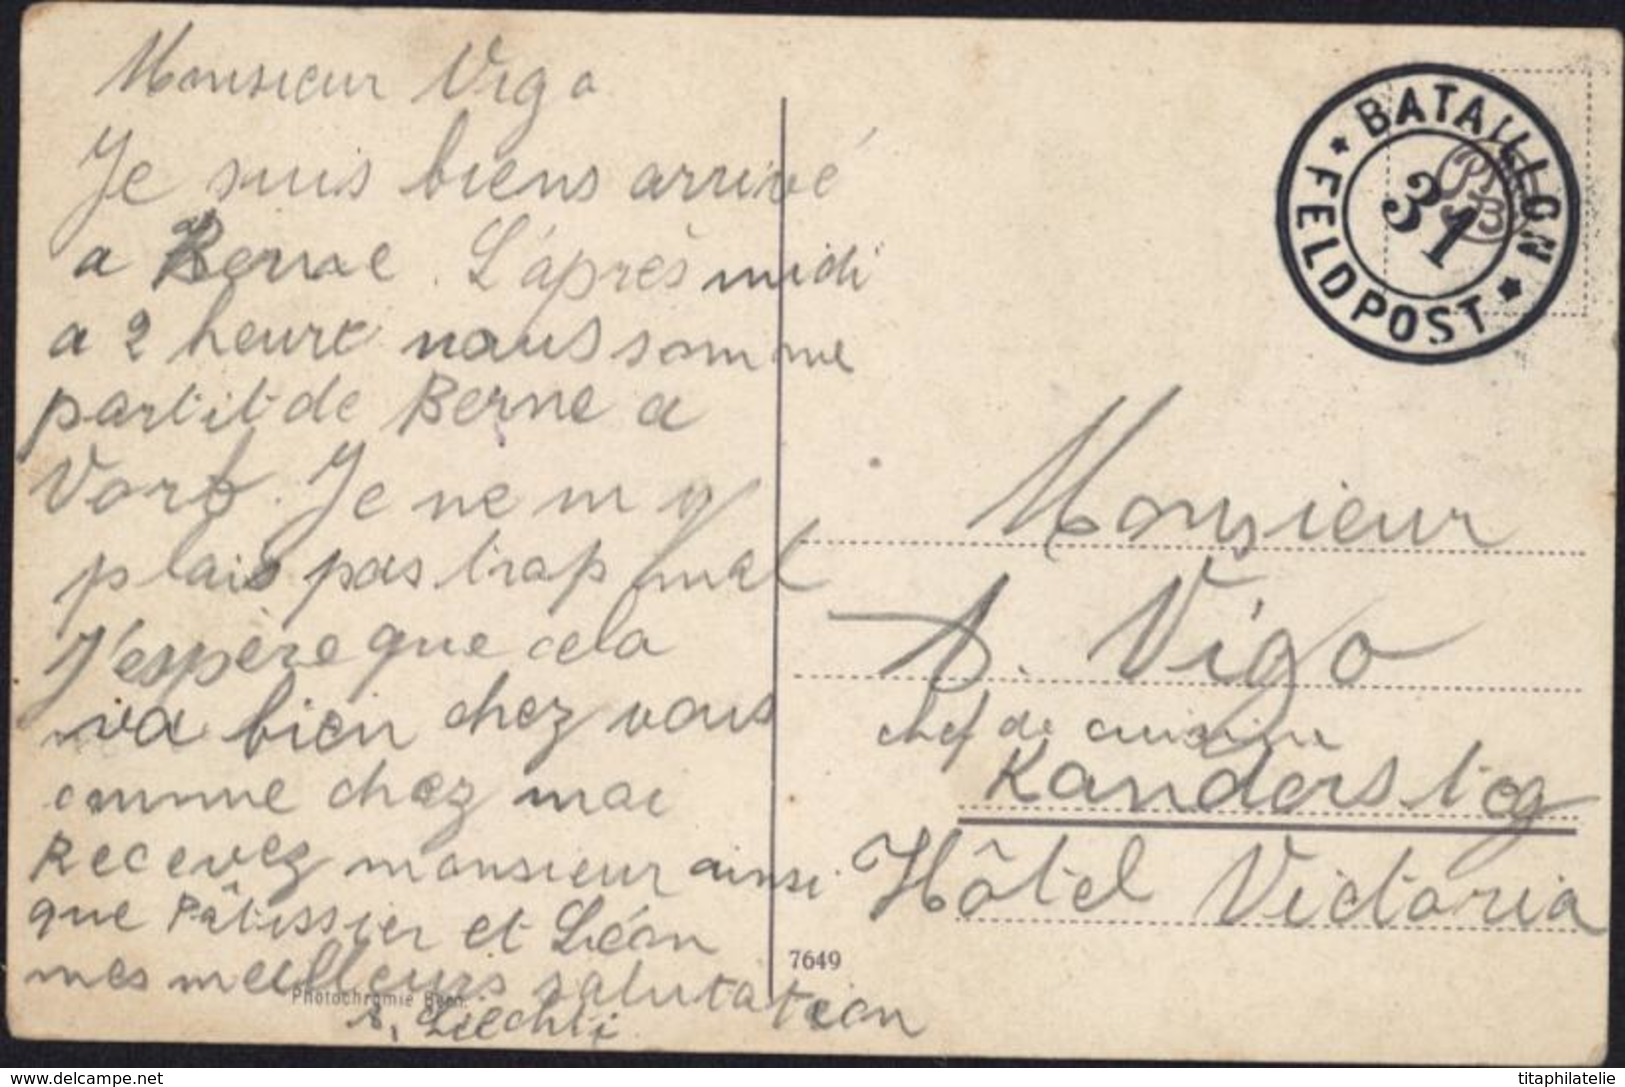 Monsieur Vigo
Je suis biens arrivé
a Berne. L'après midi
a 2 heure nous somme
partit de Berne a
Worb. Je ne m y
plais pas trop mal
J'espère que cela
va bien chez vous
comme chez moi
Recevez monsieur ainsi
que Pâtissier et Léon
mes meilleurs salutation
Liechti
Photochromie Bern.
7649
★ BATAILLON ★
FELDPOST
31
PB
Monsieur
A. Vigo
chef de cuisine
Kandersteg
Hôtel Victoria
delcampe.net
titaphilatelie